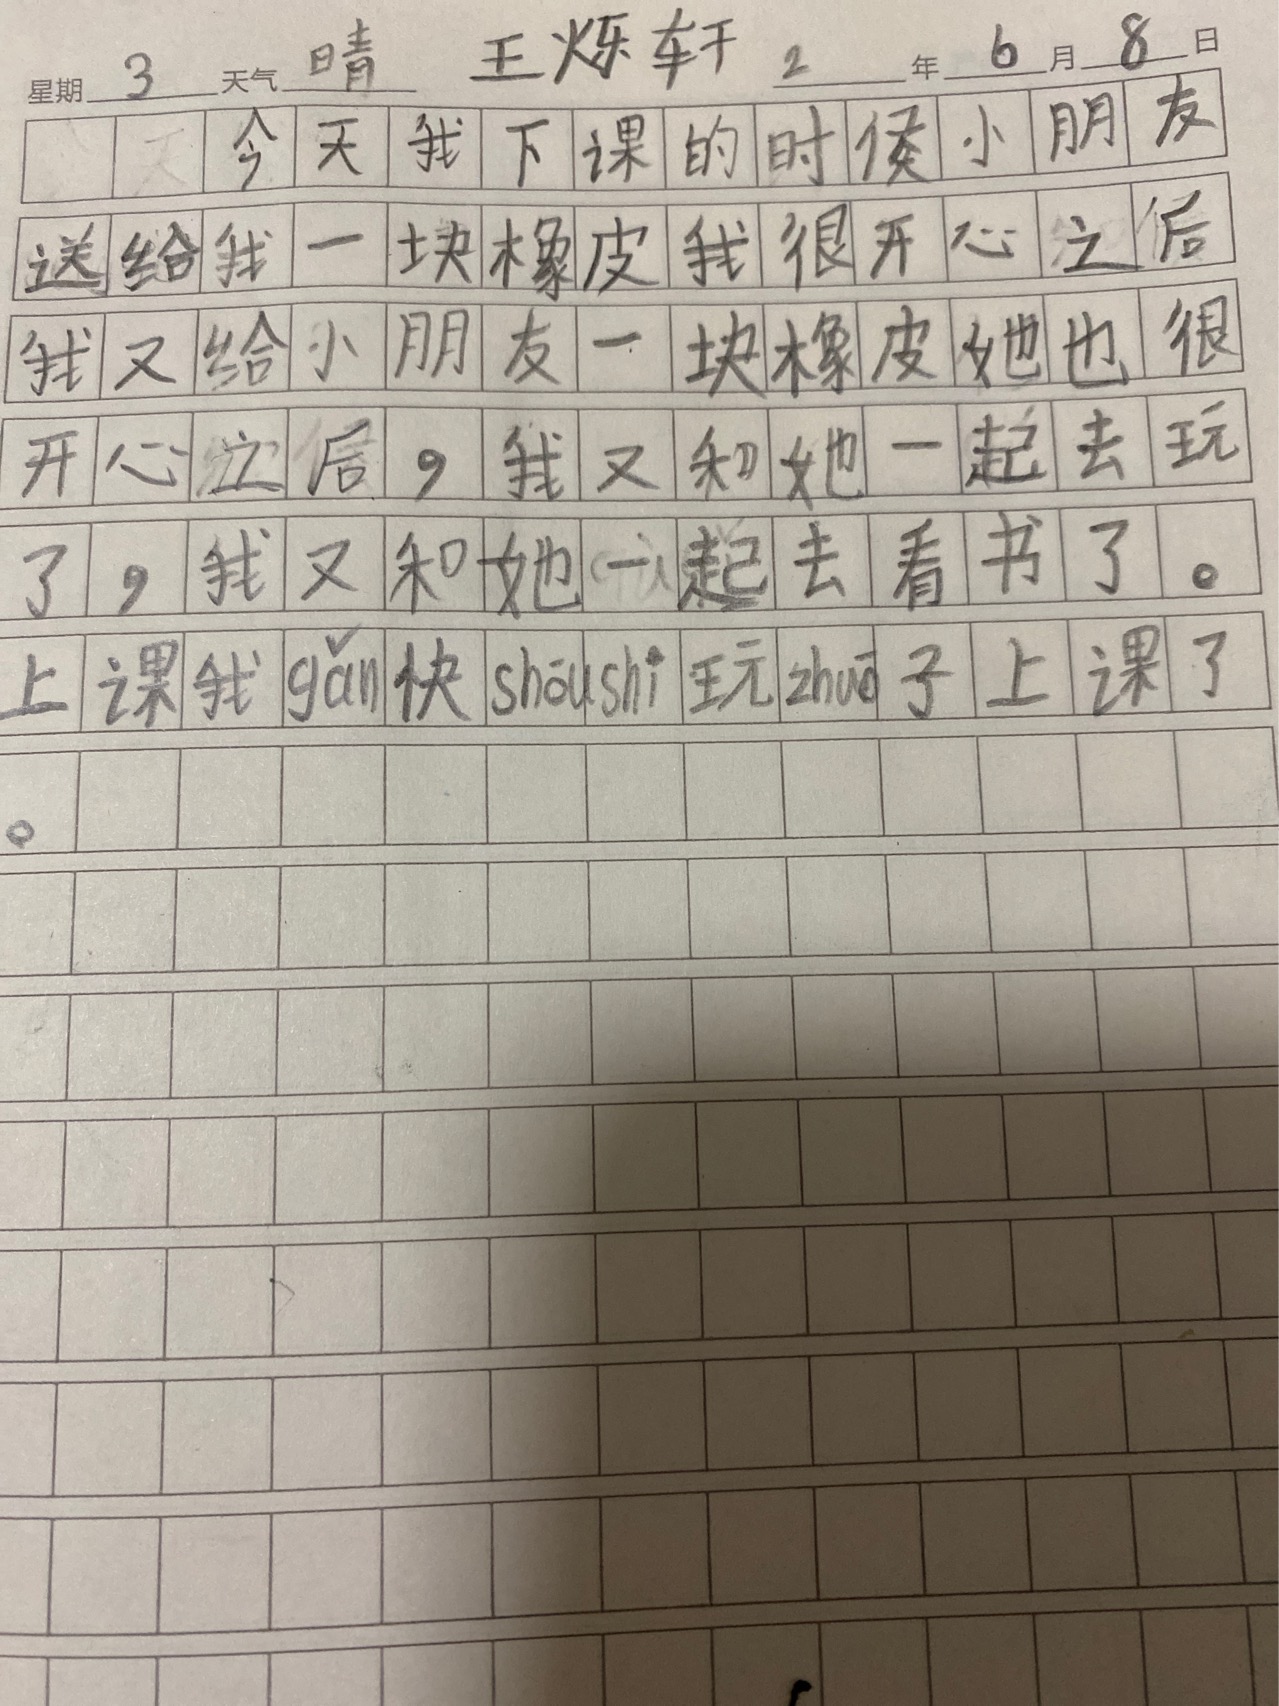 星期 3 天气 晴 王烁轩 2 年 6 月 8 日
今天我下课的时候小朋友
送给我一块橡皮我很开心之后
我又给小朋友一块橡皮她也很
开心之后，我又和她一起去玩
了，我又和她一起去看书了。
上课我gǎn快shōushi玩zhuō子上课了
。